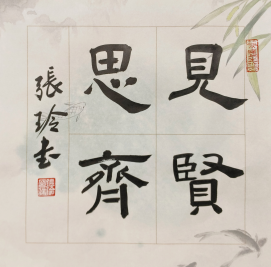 見賢
思齊
張玲書